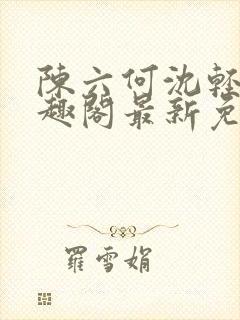 陳六何沈輕
趣閣最新免
羅雪娟